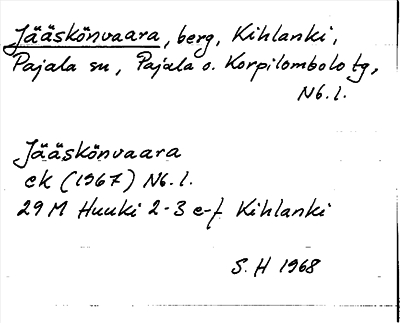 Jääskönvaara, berg, Kihlanki,
Pajala sn, Pajala o. Korpilombolo tg,
Nb. l.
Jääskönvaara
ek (1967) Nb. l.
29 M Huuki 2-3 e-f Kihlanki
S. H 1968